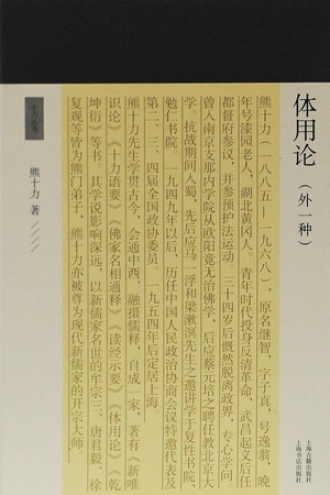 体用论
（外一种）
十力丛书
熊十力 著
熊十力（一八八五—一九六八），原名继智，字子真，号逸翁，晚
年号漆园老人，湖北黄冈人。青年时代投身反清革命，武昌起义后任
都督府参议，并参预护法运动。三十四岁后慨然脱离政界，专心学问，
曾入南京支那内学院从欧阳竟无治佛学，后应蔡元培之聘任教北京大
学。抗战期间入蜀，先后应马一浮和梁漱溟先生之邀讲学于复性书院、
勉仁书院。一九四九年以后，历任中国人民政治协商会议特邀代表及
第二、三、四届全国政协委员。一九五四年后定居上海。
熊十力先生学贯古今，会通中西，融摄儒释，自成一家，著有《新唯
识论》《十力语要》《佛家名相通释》《读经示要》《体用论》《乾
坤衍》等书。其学说影响深远，以新儒家名世的牟宗三、唐君毅、徐
复观等皆为熊门弟子，熊十力亦被尊为现代新儒家的开宗大师。
上海古籍出版社
上海书店出版社